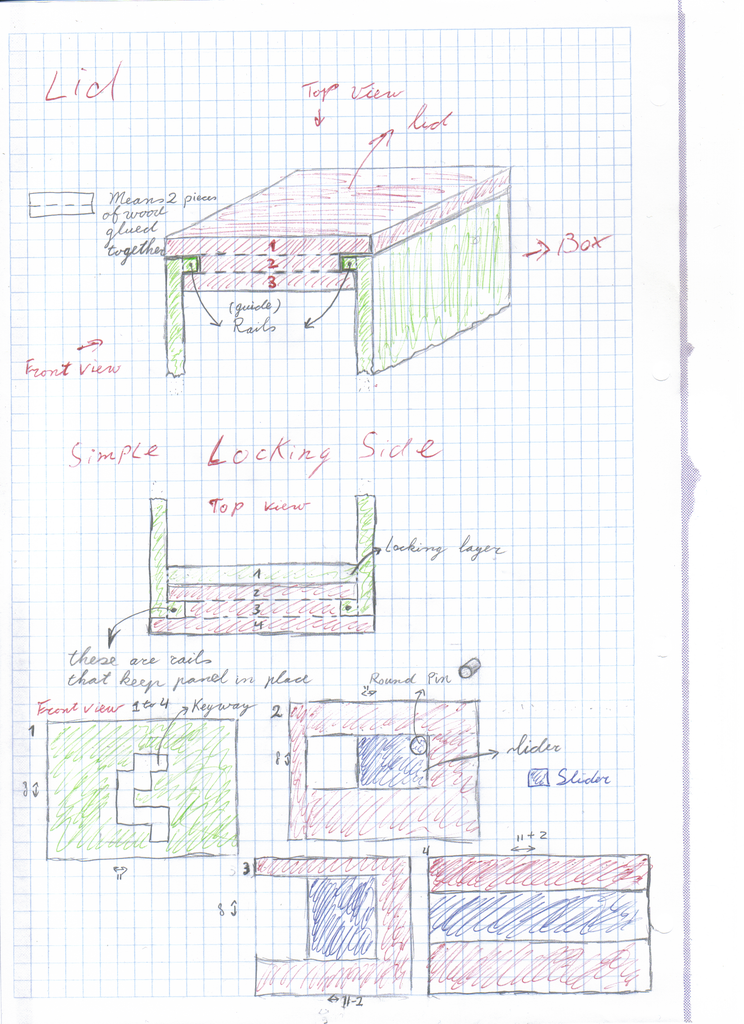 Lid
Top View
lid
Means 2 pieces
of wood
glued
together
1
2
3
Box
(guide)
Rails
Front View
Simple Locking Side
Top view
Locking layer
1
2
3
4
these are rails
that keep panel in place
Round Pin
Front view 1 to 4
Keyway
1
2
slider
Slider
3
4
11+2
11
11-2